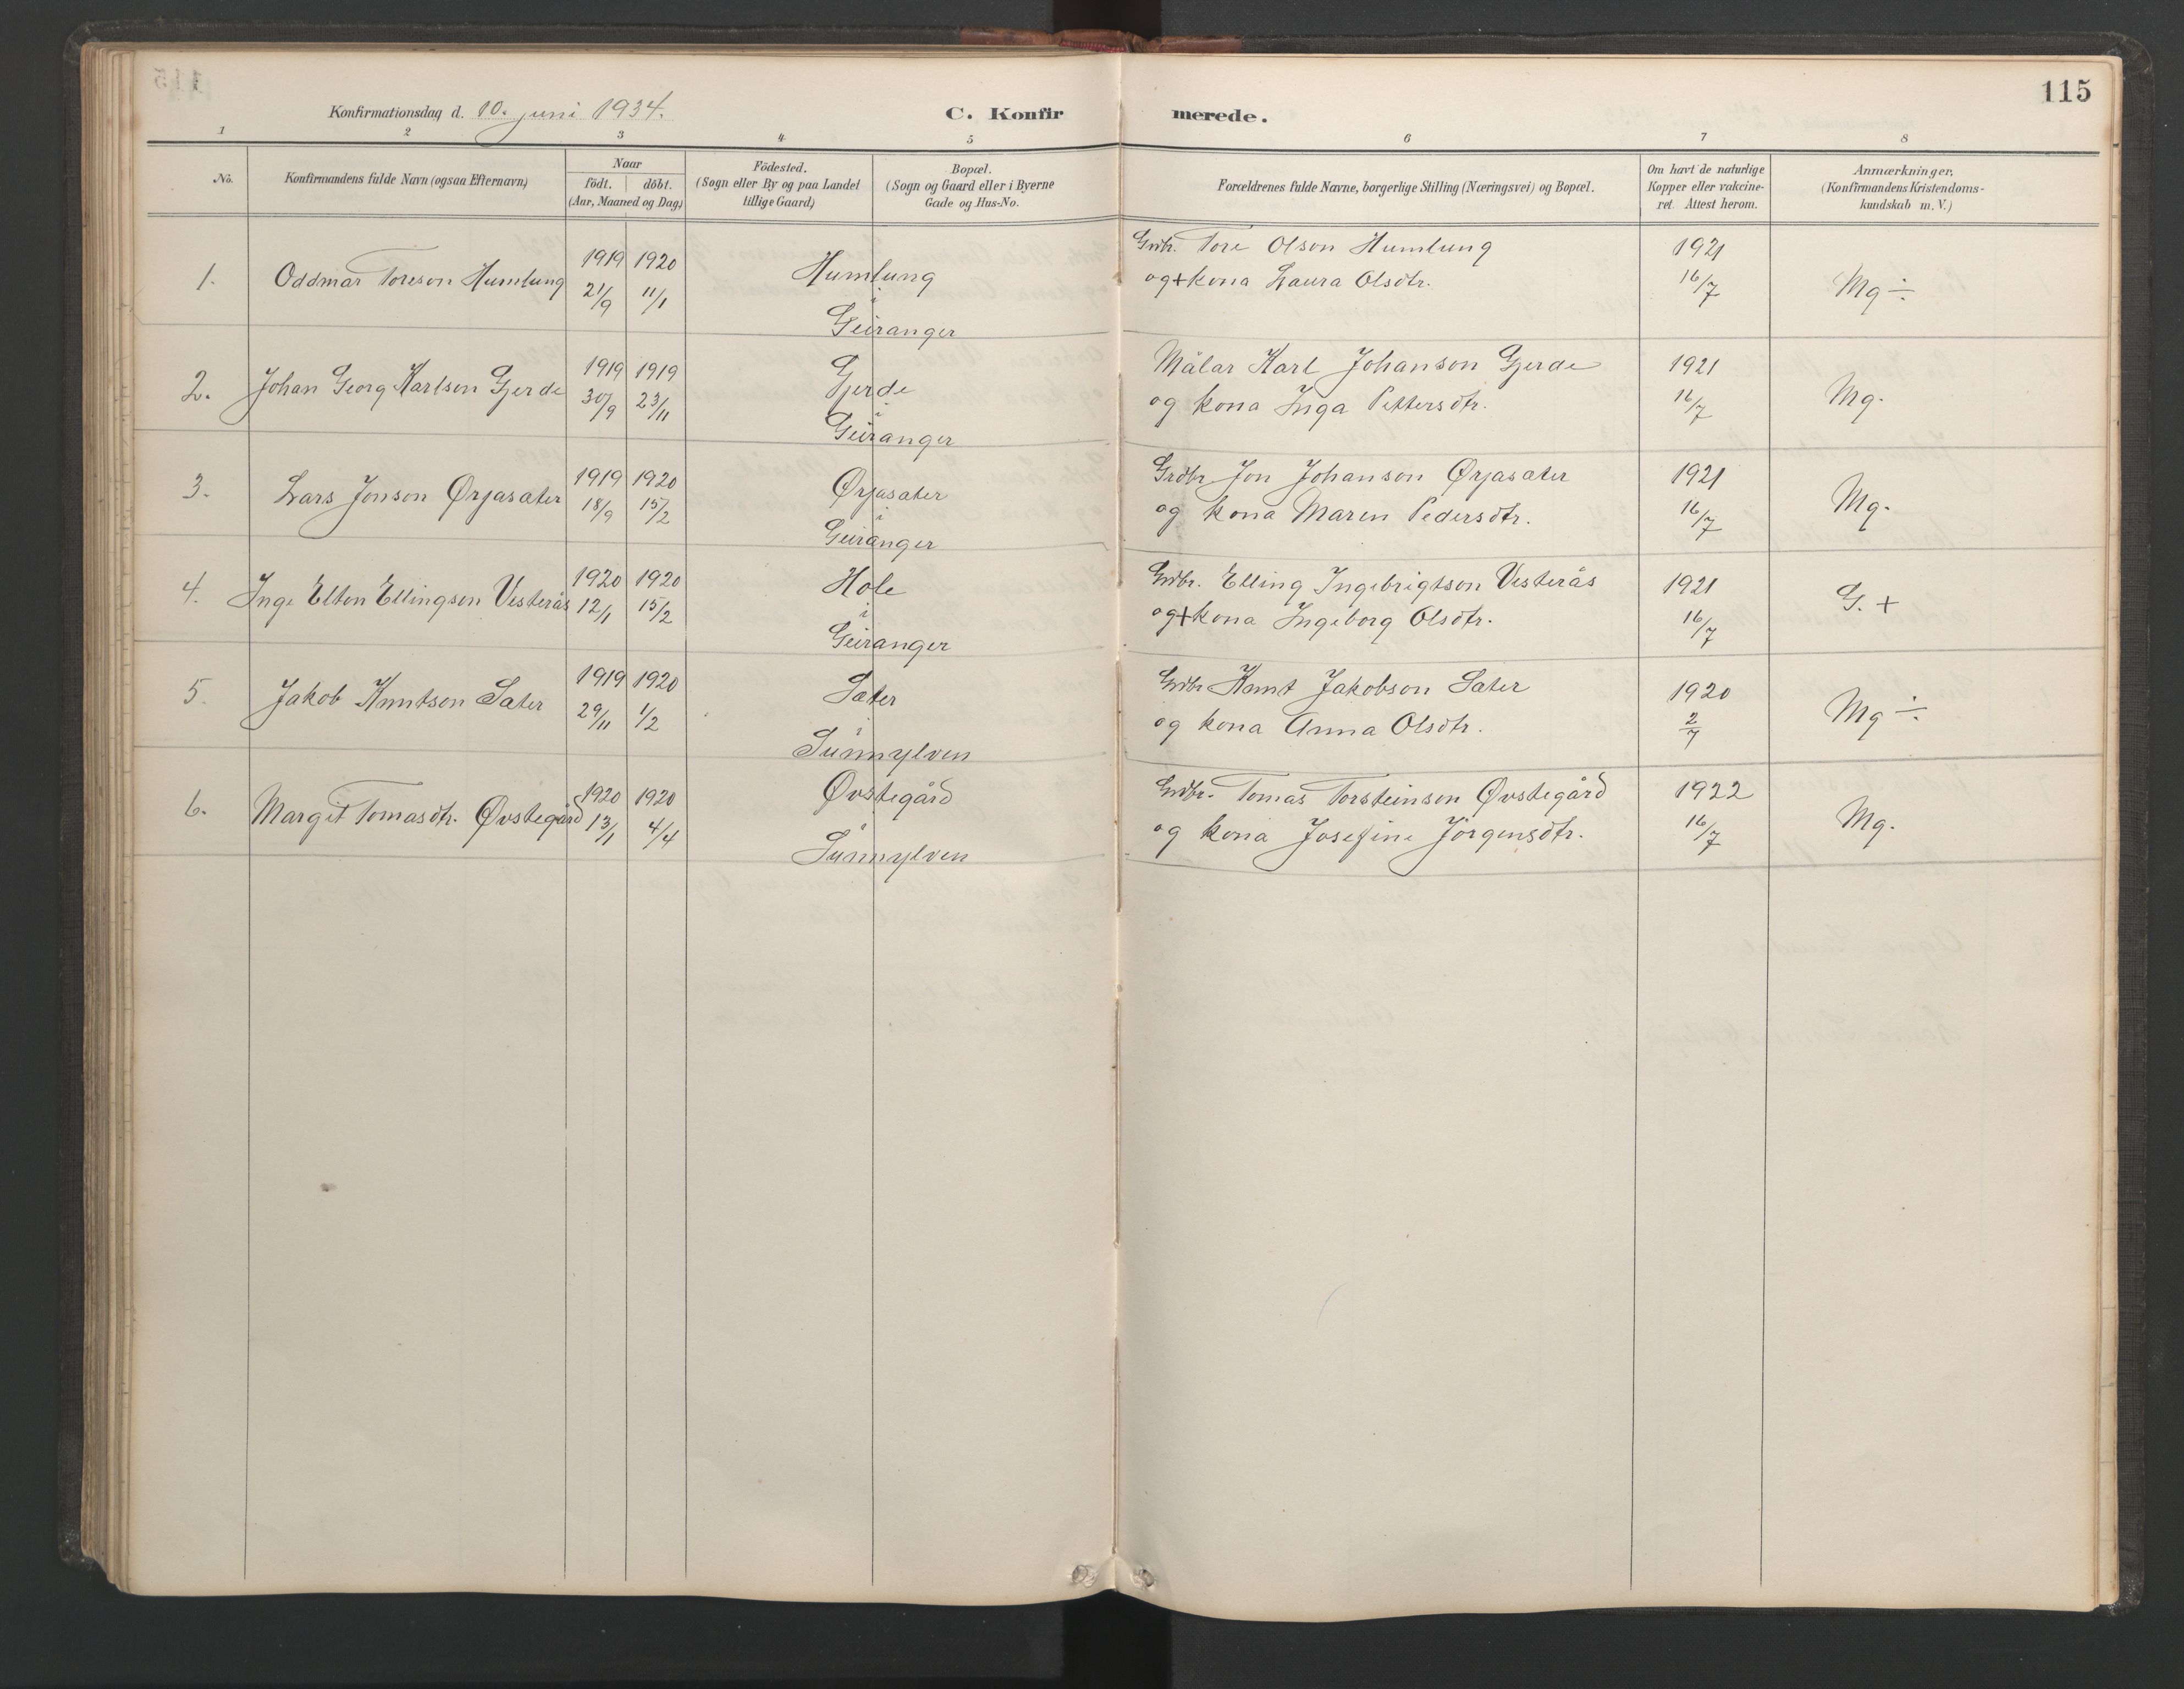 115
Konfirmationsdag d. 10. juni 1934.
C. Konfirmerede.
1 2 3 4 5 6 7 8
No.
Konfirmandens fulde Navn (ogsaa Efternavn)
Naar
födt. döbt.
(Aar, Maaned og Dag)
Födested.
(Sogn eller By og paa Landet
tillige Gaard)
Bopæl.
(Sogn og Gaard eller i Byerne
Gade og Hus-No.
Forældrenes fulde Navne, borgerlige Stilling (Næringsvei) og Bopæl.
Om havt de naturlige
Kopper eller vakcine-
ret. Attest herom.
Anmærkninger,
(Konfirmandens Kristendoms-
kundskab m. V.)
1. Oddmar Toreson Humlung
1919 1920
21/9 11/1
Humlung
i
Geiranger
Grdbr. Tore Olson Humlung
og + kona Laura Olsdtr.
1921
16/7
Mg ÷
2. Johan Georg Karlson Gjerde
1919 1919
30/9 23/11
Gjerde
i
Geiranger
Målar Karl Johanson Gjerde
og kona Inga Pettersdtr.
1921
16/7
Mg.
3. Lars Jonson Ørjasæter
1919 1920
18/9 15/2
Ørjasæter
i
Geiranger
Grdbr Jon Johanson Ørjasæter
og kona Maren Pedersdtr.
1921
16/7
Mg.
4. Inge Elton Ellingson Vesterås
1920 1920
12/1 15/2
Hole
i
Geiranger
Grdbr. Elling Ingebrigtson Vesterås
og + kona Ingeborg Olsdtr.
1921
16/7
G. +
5. Jakob Knutson Sæter
1919 1920
29/11 1/2
Sæter
i
Sunnylven
Grdbr Knut Jakobson Sæter
og kona Anna Olsdtr.
1920
2/7
Mg ÷
6. Margit Tomasdtr. Øvstegård
1920 1920
13/1 4/4
Øvstegård
i
Sunnylven
Grdbr. Tomas Torsteinson Øvstegård
og kona Josefine Jörgensdtr.
1922
16/7
Mg.